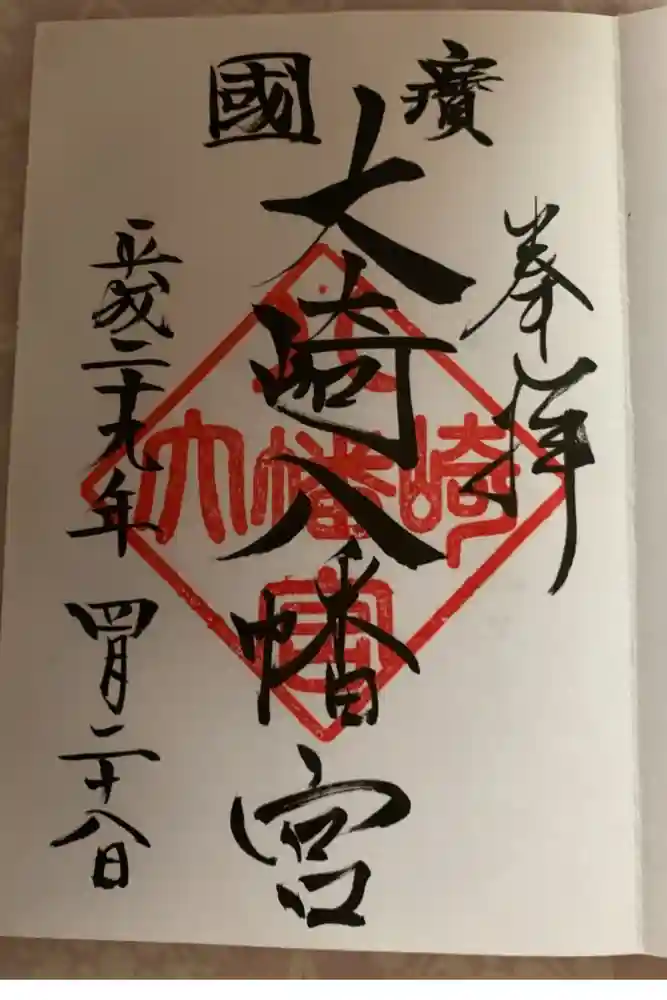 國寶
奉拝
大崎八幡宮
平成二十九年 四月二十八日
大崎八幡宮